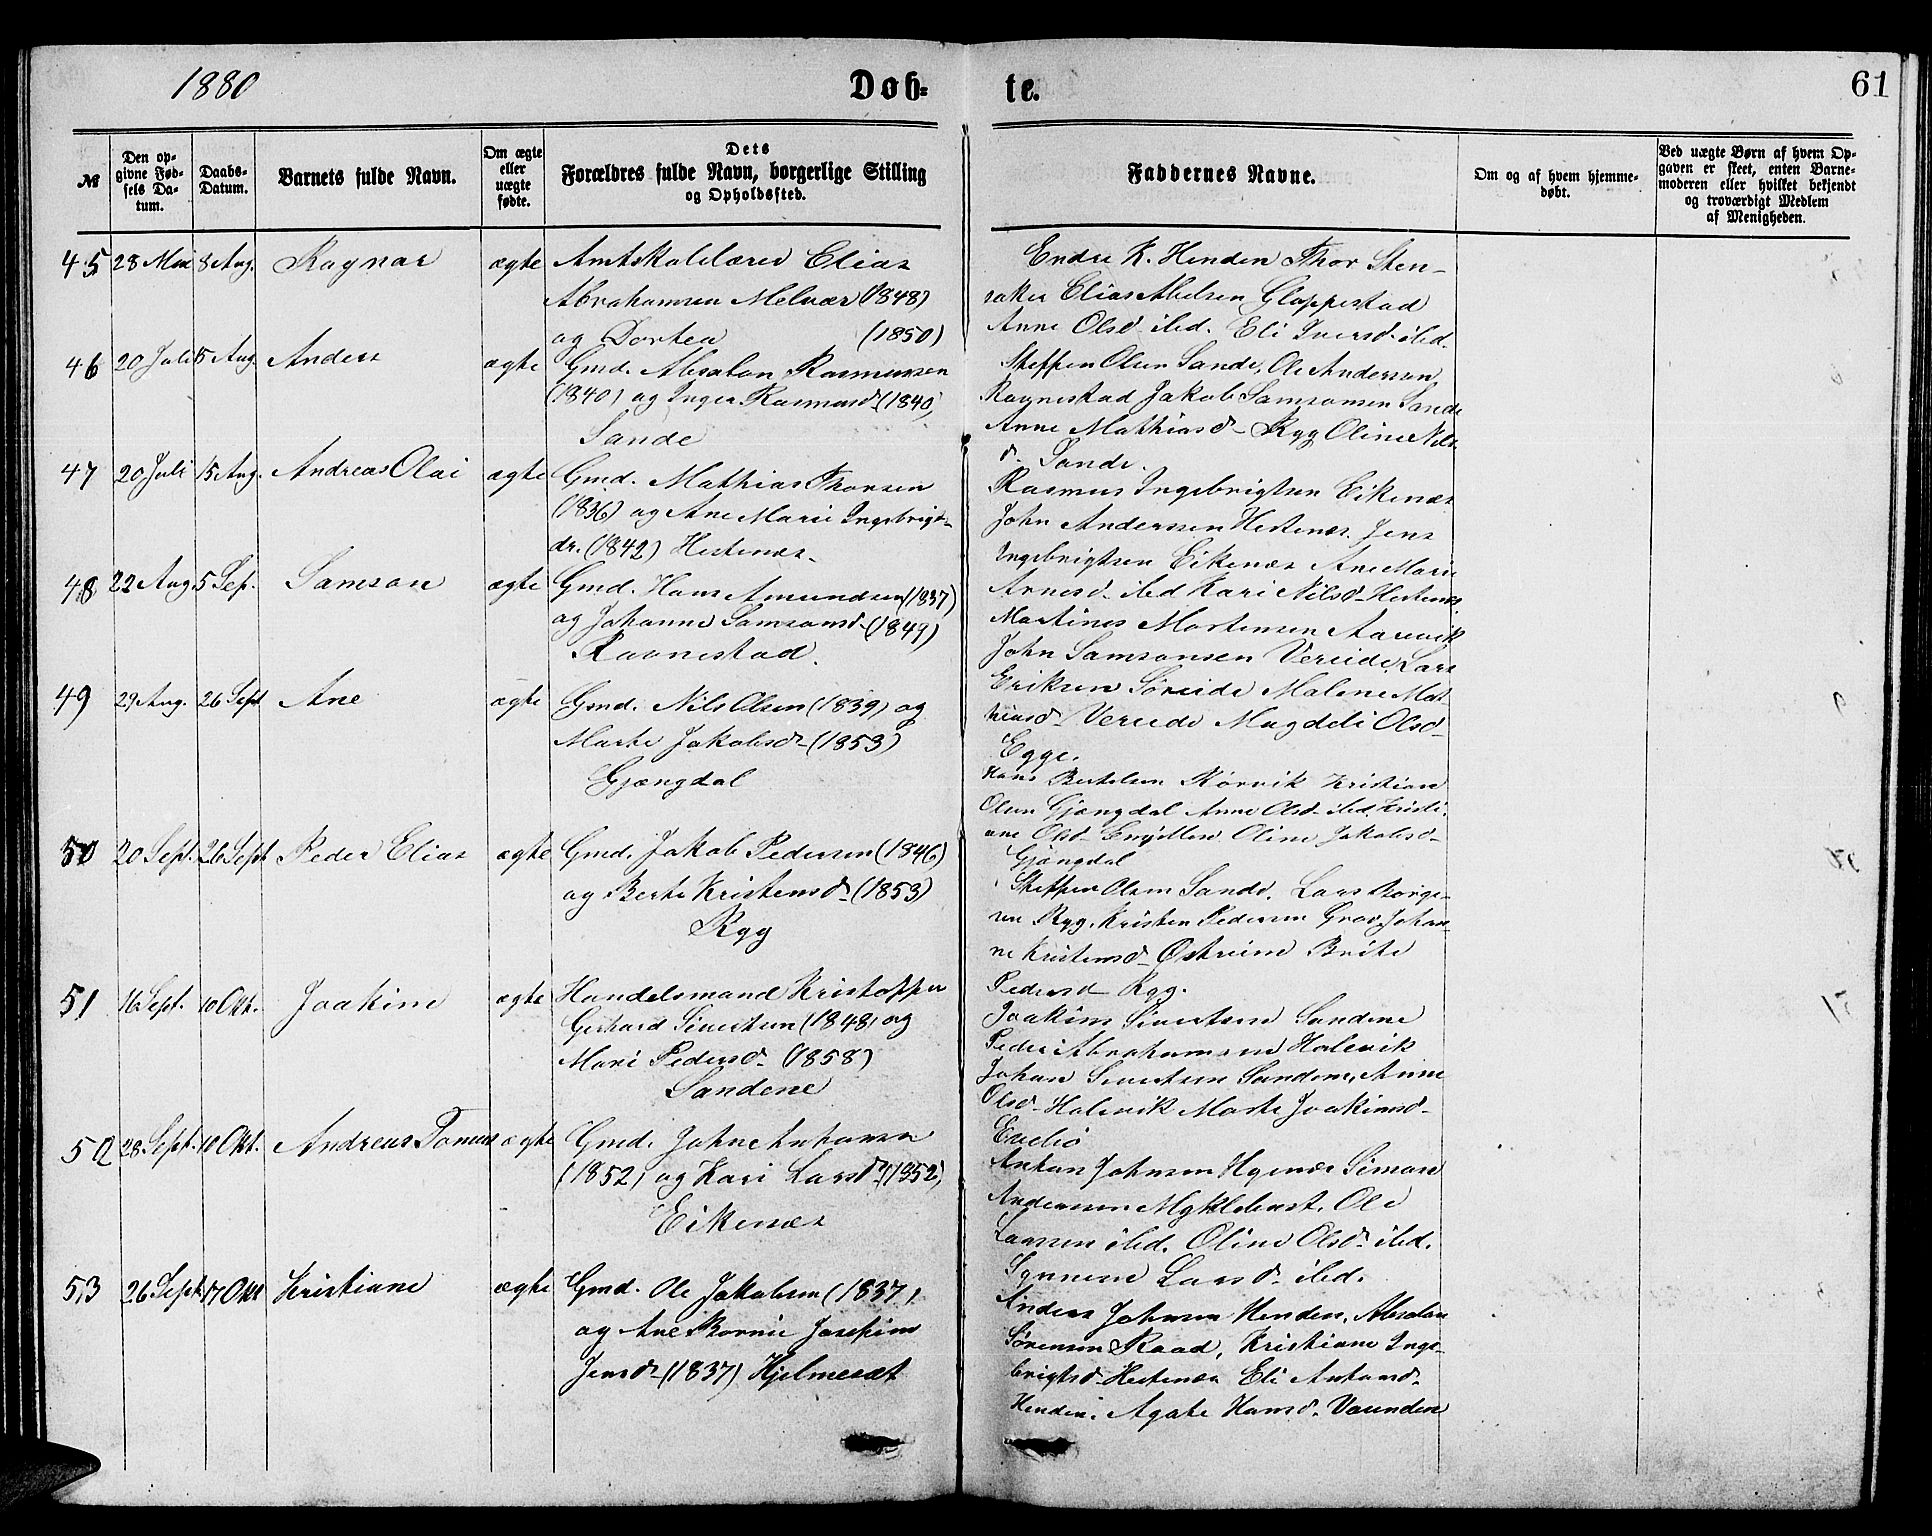 1880
Døb-
te.
61
№
Den op-
givne Fød-
sels Da-
tum.
Daabs-
Datum.
Barnets fulde Navn.
Om ægte
eller
uægte
fødte.
Dets
Forældres fulde Navn, borgerlige Stilling
og Opholdssted.
Faddernes Navne.
Om og af hvem hjemme-
døbt.
Ved uægte Børn af hvem Op-
gaven er skeet, enten Barne-
moderen eller hvilket bekjendt
og troværdigt Medlem
af Menigheden.
45 28 Mai 8 Aug. Ragnar ægte Amtskolelærer Elias
Abrahamsen Melvær (1848)
og Dortea (1850)
Endre R. Henden Thor Sten-
saker Elias Abelsen Gloppestad
Anne Olsd ibd. Eli Iversd. ibd.
46 20 Juli 15 Aug. Anders ægte Gmd. Absalon Rasmussen
(1840) og Inger Rasmusd. (1840)
Sande
Steffen Olsen Sande, Ole Andersen
Ravnestad Jakob Samsonsen Sande
Anne Mathiasd. Ryg Oline Nils
d. Sande.
47 20 Juli 15 Aug. Andreas Olai ægte Gmd. Mathias Thorsen
(1836) og Ane Marie Ingebrigt-
dr. (1842) Hestenæs.
Rasmus Ingebrigtsen Eikenæs
John Anderssen Hestenæs. Jens
Ingebrigtsen Eikenæs Ane Marie
Arnesd. ibd Kari Nilsd. Hestenæs
48 22 Aug. 5 Sep. Samson ægte Gmd. Hans Amundsen (1837)
og Johanne Samsonsd. (1849)
Ravnestad.
Martines Mortensen Aarevik
John Samsonsen Vereide, Lars
Eriksen Søreide Malene Mat-
hiasd. Vereide Magdeli Olsd.
Egge.
49 29 Aug. 26 Sept Ane ægte Gmd. Nils Olsen (1839) og
Marte Jakobsd. (1853)
Gjengdal
Hans Bertelsen Rørvik Kristian
Olsen Gjengdal Anne Olsd. ibd, Kristi-
ane Olsd. Oline Jakobsd.
Gjengdal
50 20 Sept. 26 Sept Peder Elias ægte Gmd. Jakob Pedersen (1846)
og Berte Kristensd. (1853)
Ryg
Steffen Olsen Sande. Lars Børge-
sen Ryg, Kristen Pedersen Grov, Johan-
ne Kristensd. Østreim Brite
Pedersd. Ryg.
51 16 Sept. 10 Okt. Joakim ægte Handelsmand Kristoffer
Gerhard Sivertsen (1848) og
Mari Pedersd. (1858)
Sandene
Joakim Sivertsen Sandene
Peder Abrahamsen Holevik
Johan Sivertsen Sandene, Anne
Olsd. Holevik Marte Joakimsd.
52 28 Sept. 10 Okt. Andreas Tomas ægte Gmd. John Antonsen
(1852) og Kari Larsd. (1852)
Eikenæs
Anton Johnsen Simon
Anderssen Myklebust, Ole
Larssen ibd. Oline Olsd. ibd.
Synneve Larsd. ibd.
53 26 Sept. 17 Okt Kristiane ægte Gmd. Ole Jakobsen (1837)
og Ane Josefine
Jensd. (1837) Hjelmesæt
Anders Johnsen Henden, Absalon
Sørensen Raad, Kristiane Inge-
brigtsd. Hestenæs Eli Antonsd.
Henden. Agate Hansd. Vaanden